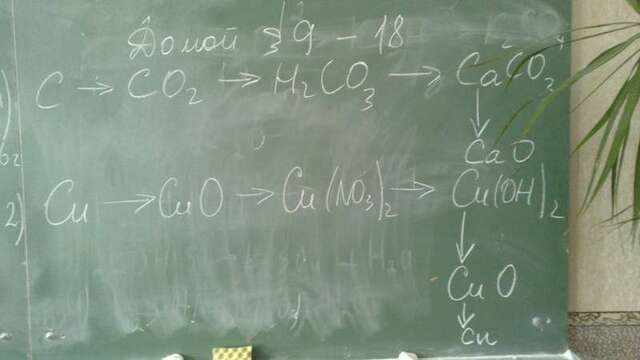 Домой § 9 – 18
C → CO₂ → H₂CO₃ → CaCO₃
↓
CaO
2) Cu → CuO → Cu(NO₃)₂ → Cu(OH)₂
↓
CuO
↓
Cu